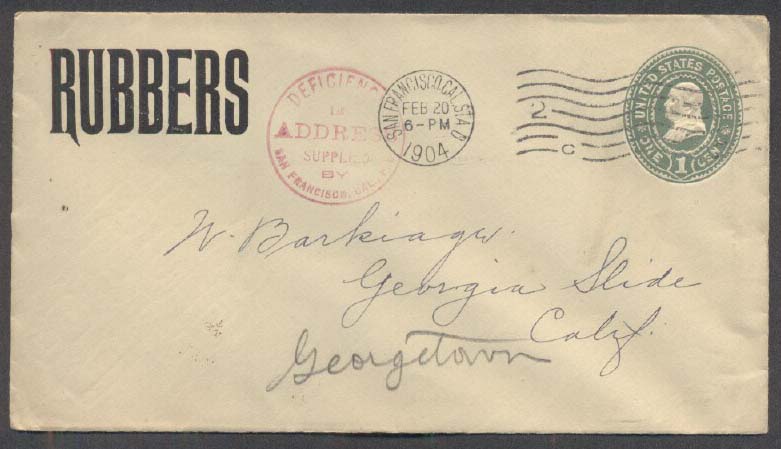 RUBBERS
DEFICIENC
IN
ADDRES
SUPPLIED
BY
SAN FRANCISCO, CAL.
SAN FRANCISCO, CAL. STA. D
FEB 20
6-PM
1904
2
C
UNITED STATES POSTAGE
ONE 1 CENT
W. Barkiagw.
Georgia Slide
Calif.
Georgetown